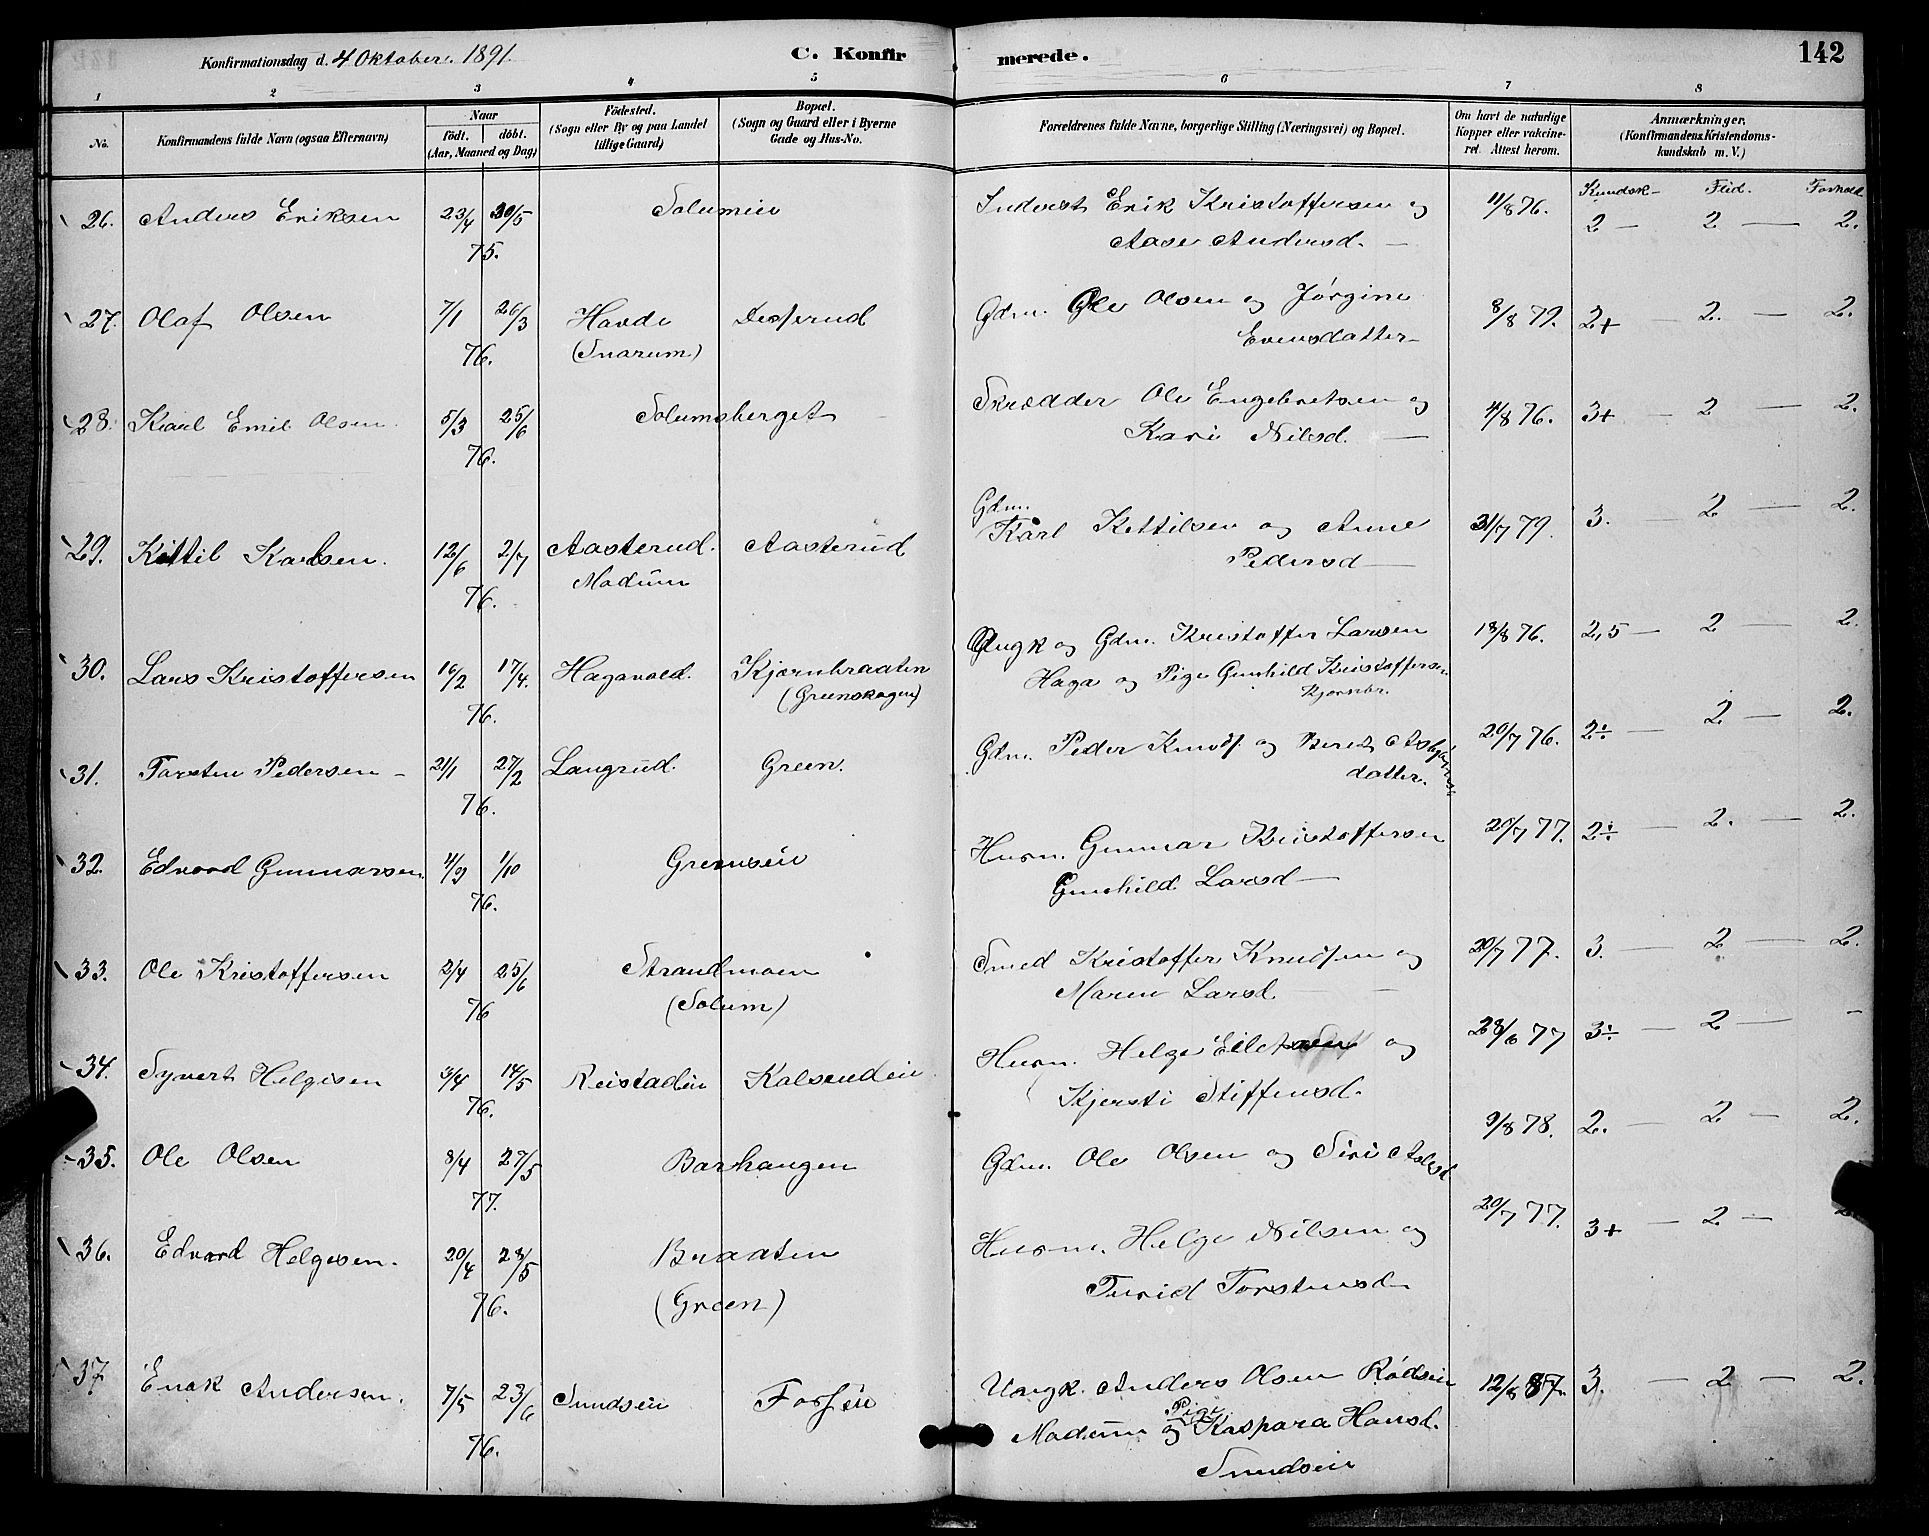 Konfirmationsdag d. 4 Oktober. 1891. C. Konfirmerede. 142
1 2 3 4 5 6 7 8
No. Konfirmandens fulde Navn (ogsaa Efternavn) Naar födt. döbt. (Aar, Maaned og Dag) Födested. (Sogn eller By og paa Landet tillige Gaard.) Bopæl. (Sogn og Gaard eller i Byerne Gade og Hus-No. Forældrenes fulde Navne, borgerlige Stilling (Næringsvei) og Bopæl. Om havt de naturlige Kopper eller vakcineret. Attest herom. Anmærkninger. (Konfirmandens Kristendomskundskab m. V.)
Kundsk — Flid. Forhold
26. Anders Eriksen 23/4 30/5 75. Solumeie Inderst Erik Kristoffersen og 11/8 76. 2 — 2 — 2.
Aase Andersd. —
27. Olaf Olsen 7/1 26/3 76. Havde (Snarum) Desserud Gdm. Ole Olsen og Jørgine 8/8 79. 2+ — 2. — 2.
Evensdatter
28. Karl Emil Olsen. 5/3 25/6 76. Solumsberget Skrædder Ole Engebretsen og 4/8 76. 3+ — 2 — 2.
Kari Nilsd. —
29. Kittil Karlsen. 12/6 2/7 76. Aasterud. Modum Aasterud Gdm. Karl Kittilsen og Anne 31/7 79. 3. — 2 — 2.
Pedersd —
30. Lars Kristoffersen 16/2 17/4. 76. Hagavold. Kjørnbraaten (Greenskogen) Ungk og Gdm. Kristoffer Larsen 18/8 76. 2,5 — 2 — 2.
Haga og Pige Gunhild Kristoffersd.
Kjørnbr.
31. Torsten Pedersen — 21/1 27/2 76. Langrud. Green. Gdm. Peder Knuds. og Beret Asbjørns 20/7 76. 2÷ — 2 — 2.
datter.
32. Edvard Gunnarsen. 4/9 1/10 76. Greenseie Husm. Gunnar Kristoffersen 20/7 77. 2÷ — 2. — 2.
Gunhild Larsd —
33. Ole Kristoffersen 2/4 25/6 76 Strandmoen (Solum) Smed Kristoffer Knudsen og 20/7 77. 3. — 2 — 2.
Maren Larsd — —
34. Syvert Helgesen 3/4 14/5 76. Reistadeie Kolsrudeie Husm. Helge og 28/6 77 3÷ — 2 — -
Kjersti Stiffensd.
35. Ole Olsen 8/4 27/5 77. Barhaugen Gdm. Ole Olsen og Siri Aslesd 9/8 78. 2. — 2 — 2.
36. Edvard Helgesen. 20/4 28/5 76. Braaten (Green) Husm. Helge Nilsen og 20/7 77. 3+ — 2 — 2
Turid Torstensd
37 Enok Andersen. 7/5 23/6 76. Sundseie Forseie Ungk. Anders Olsen Rødseie 12/8 87. 3. — 2 — 2.
Modum og Pige Kaspara Hansd.
Sundseie